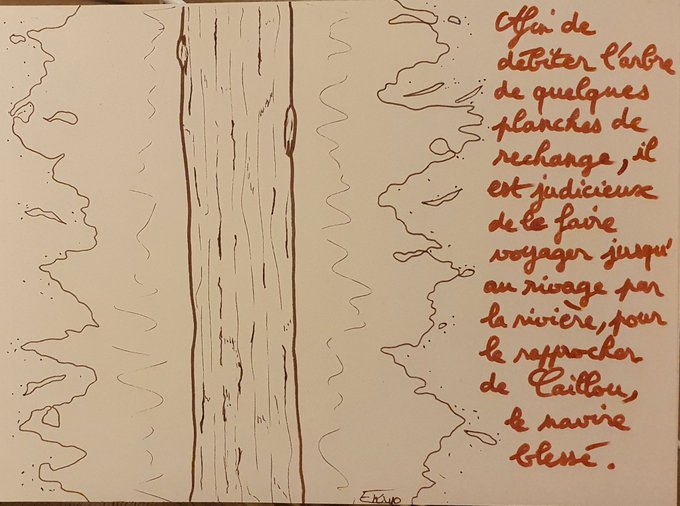 Afin de
débiter l'arbre
de quelques
planches de
rechange, il
est judicieux
de le faire
voyager jusqu'
au rivage par
la rivière, pour
le rapprocher
de Caillou,
le navire
blessé.